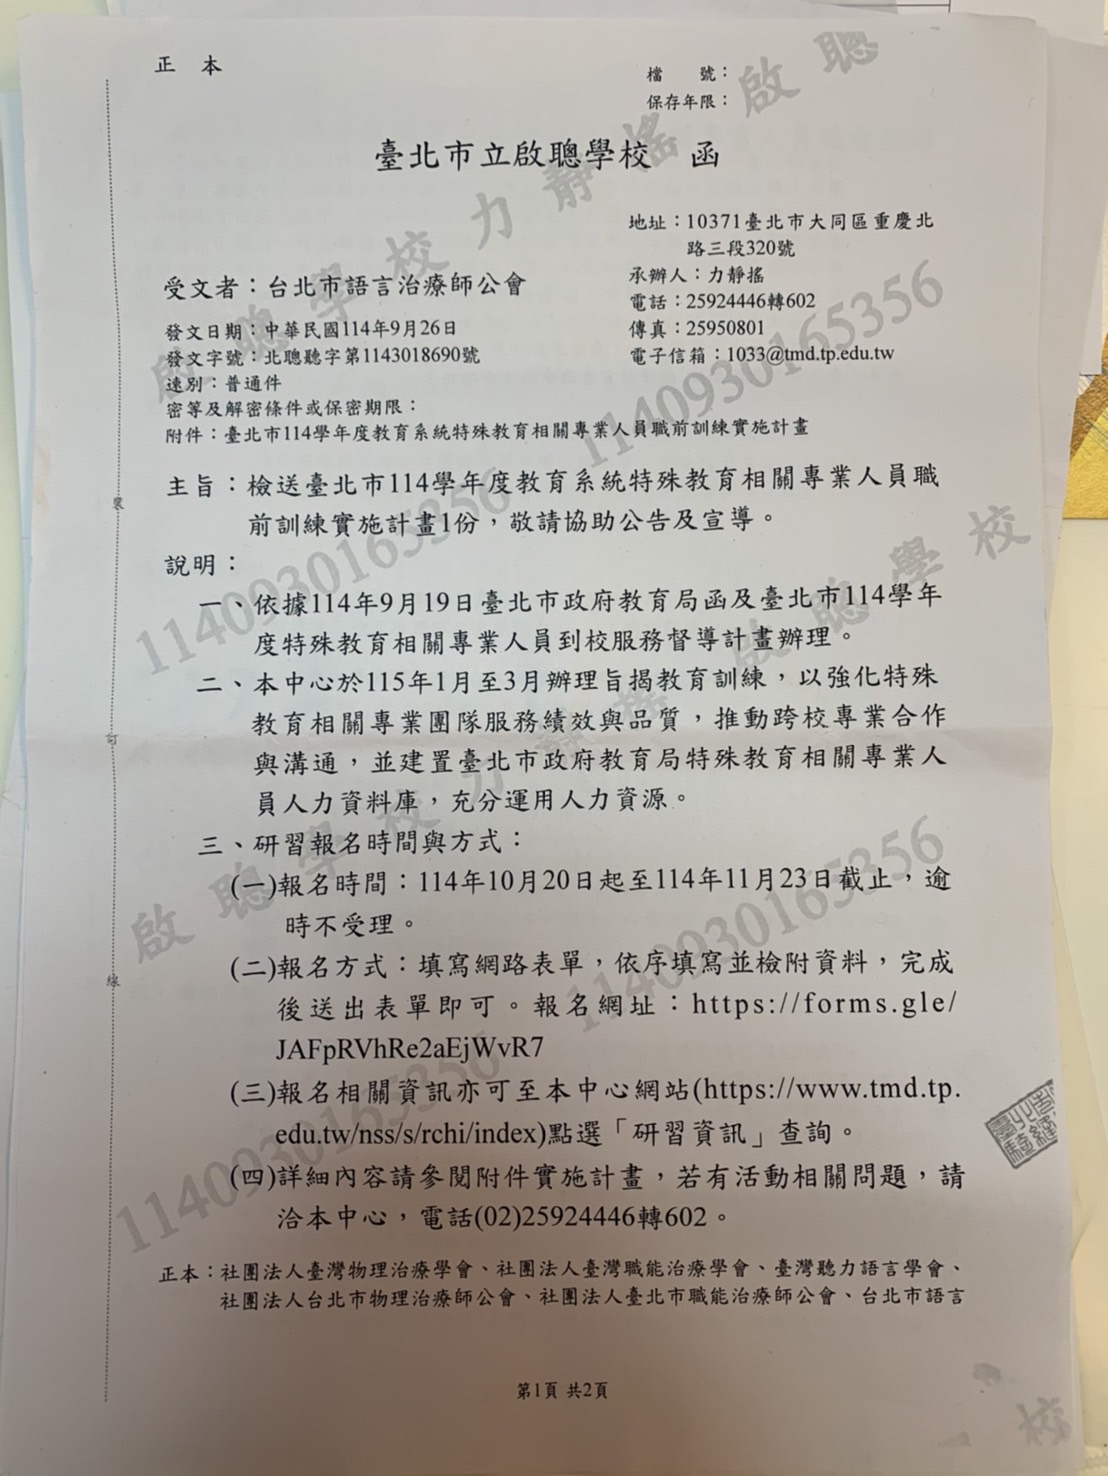 正本
檔　　號：
保存年限：
臺北市立啟聰學校　函
地址：10371臺北市大同區重慶北
路三段320號
承辦人：力靜搖
電話：25924446轉602
傳真：25950801
電子信箱：1033@tmd.tp.edu.tw
受文者：台北市語言治療師公會
發文日期：中華民國114年9月26日
發文字號：北聰聽字第1143018690號
速別：普通件
密等及解密條件或保密期限：
附件：臺北市114學年度教育系統特殊教育相關專業人員職前訓練實施計畫
主旨：檢送臺北市114學年度教育系統特殊教育相關專業人員職
前訓練實施計畫1份，敬請協助公告及宣導。
說明：
一、依據114年9月19日臺北市政府教育局函及臺北市114學年
度特殊教育相關專業人員到校服務督導計畫辦理。
二、本中心於115年1月至3月辦理旨揭教育訓練，以強化特殊
教育相關專業團隊服務績效與品質，推動跨校專業合作
與溝通，並建置臺北市政府教育局特殊教育相關專業人
員人力資料庫，充分運用人力資源。
三、研習報名時間與方式：
(一)報名時間：114年10月20日起至114年11月23日截止，逾
時不受理。
(二)報名方式：填寫網路表單，依序填寫並檢附資料，完成
後送出表單即可。報名網址：https://forms.gle/
JAFpRVhRe2aEjWvR7
(三)報名相關資訊亦可至本中心網站(https://www.tmd.tp.
edu.tw/nss/s/rchi/index)點選「研習資訊」查詢。
(四)詳細內容請參閱附件實施計畫，若有活動相關問題，請
洽本中心，電話(02)25924446轉602。
正本：社團法人臺灣物理治療學會、社團法人臺灣職能治療學會、臺灣聽力語言學會、
社團法人台北市物理治療師公會、社團法人臺北市職能治療師公會、台北市語言
第1頁 共2頁
裝
訂
線
啟聰學校力靜搖
啟聰
1140930165356
1140930165356
啟聰學校力靜搖
啟聰學校
1140930165356
1140930165356
校